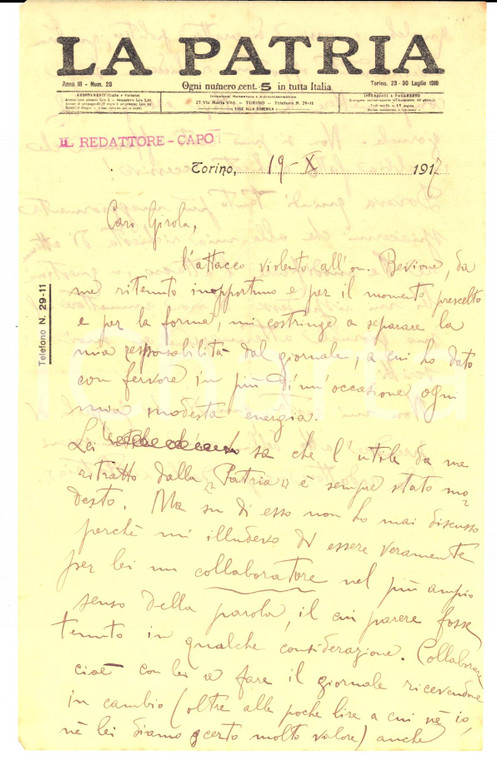 LA PATRIA
Anno III - Num. 29
Ogni numero cent. 5 in tutta Italia
Torino, 23-30 Luglio 1916
27 Via Maria Vitt. - TORINO - Telefono N. 29-11
IL REDATTORE-CAPO
Torino, 19-X 1917
Telefono N. 29-11
Caro Girola,
l'attacco violento all'on. Bevione, da
me ritenuto inopportuno e per il momento prescelto
e per la forma, mi costringe a separare la
mia responsabilità dal giornale, a cui ho dato
con fervore in più d'un'occasione ogni
mia modesta energia.
Lei sa che l'utile da me
ritratto dalla "Patria" è sempre stato mo
desto. Ma su di esso non ho mai discusso
perchè mi illudevo di essere veramente
per lei un collaboratore nel più ampio
senso della parola, il cui parere fosse
tenuto in qualche considerazione. Collaborare
cioè con lei a fare il giornale ricevendone
in cambio (oltre alle poche lire a cui nè io,
nè lei diamo certo molto valore) anche